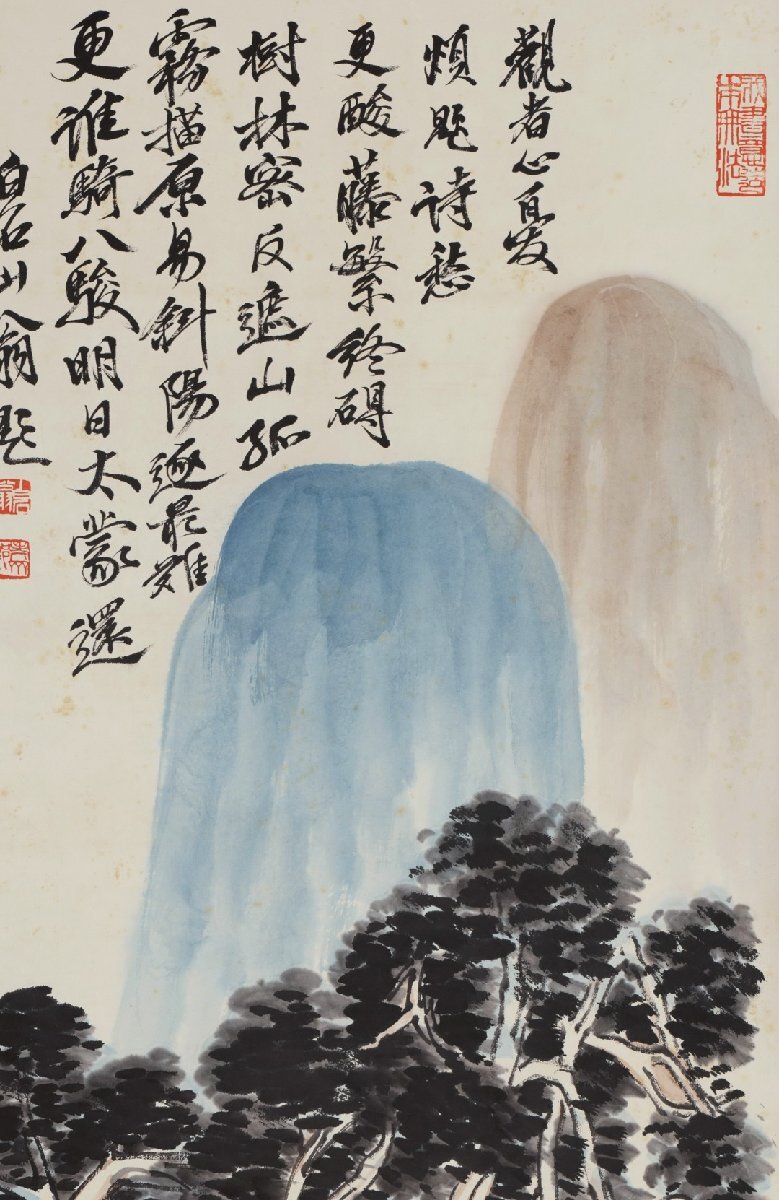 觀者心憂
煩題詩愁
更酸藤繁終礙
樹林密反遮山孤
霧描原易斜陽逐最難
更誰騎八駿明日大蒙還
白石山翁題